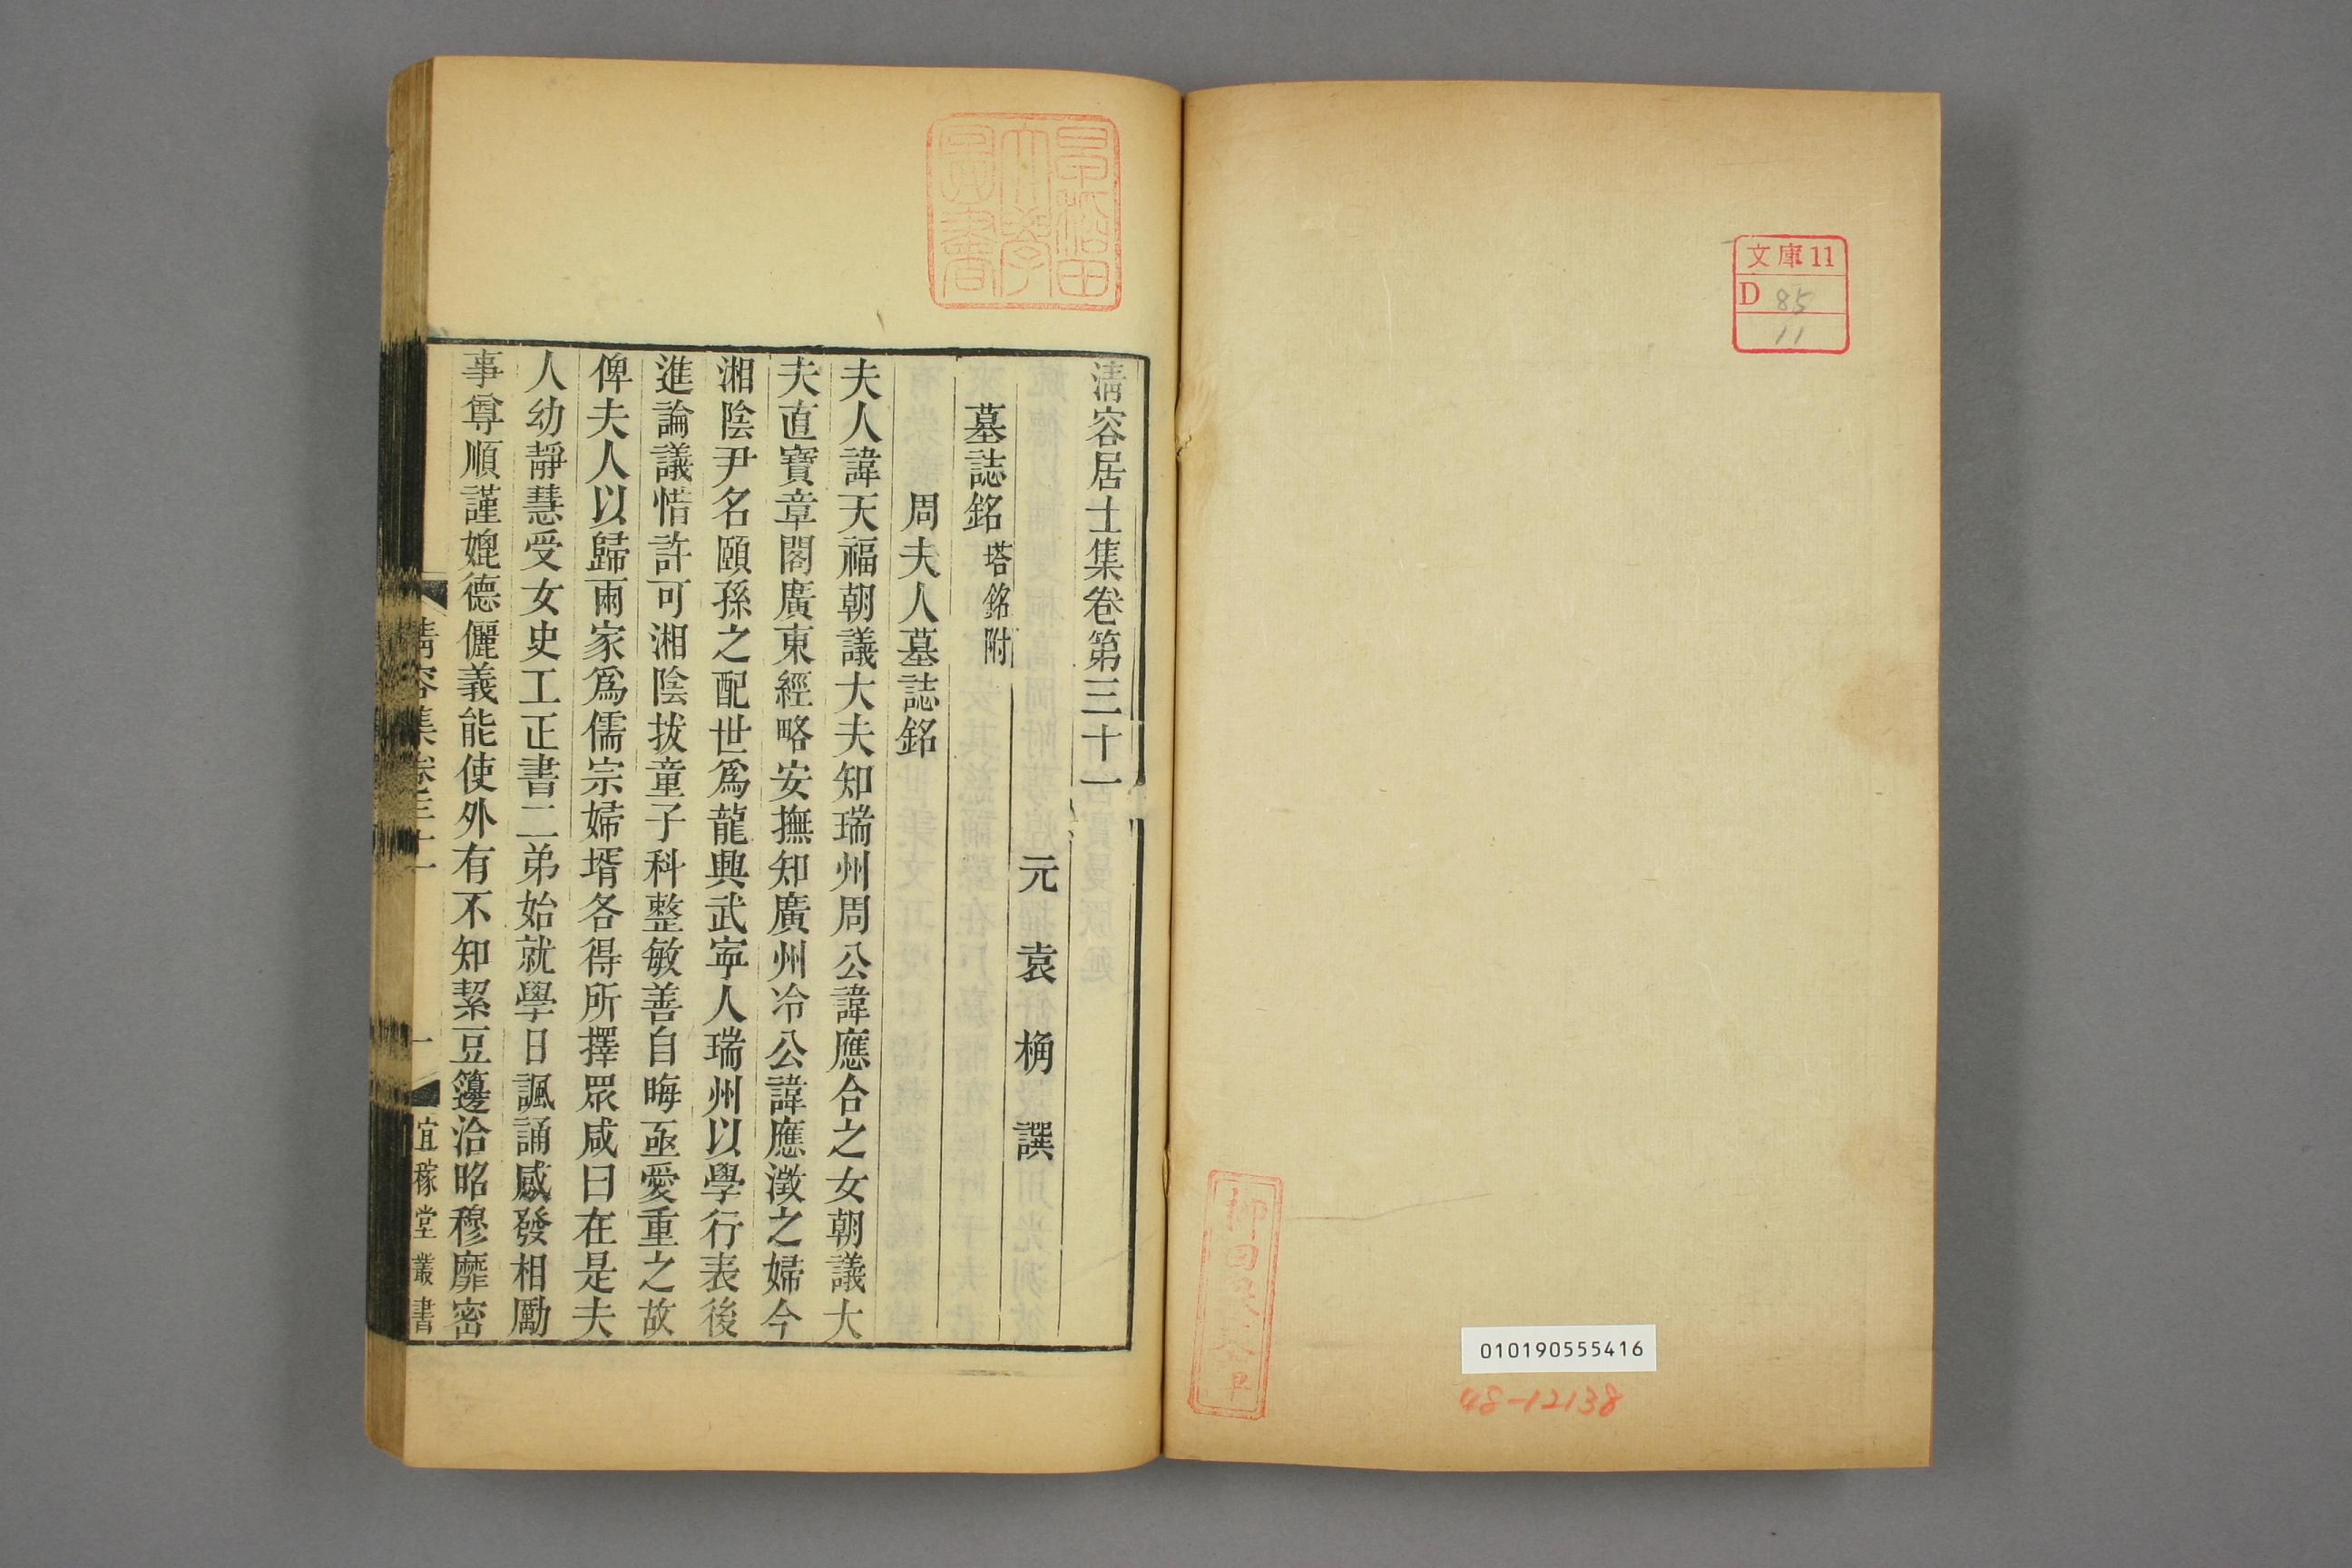 文庫11
D 85
11
010190555416
48-12138
早稲田
大學
圖書
清容居士集卷第三十一
元 袁 桷 譔
墓誌銘 塔銘附
周夫人墓誌銘
夫人諱天福朝議大夫知瑞州周公諱應合之女朝議大
夫直寶章閣廣東經略安撫知廣州冷公諱應澂之婦今
湘陰尹名頤孫之配世爲龍興武寧人瑞州以學行表後
進論議惜許可湘陰拔童子科整敏善自晦亟愛重之故
俾夫人以歸兩家爲儒宗婦壻各得所擇眾咸曰在是夫
人幼靜慧受女史工正書二弟始就學日諷誦感發相勵
事尊順謹媲德儷義能使外有不知絜豆籩洽昭穆靡密
清容集卷三十一
一
宜稼堂叢書